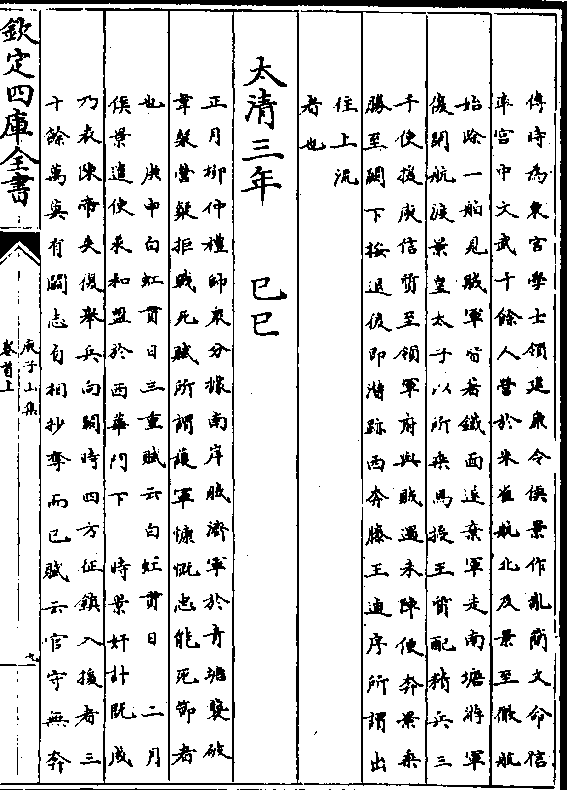 傅時為東宮學士領建康令侯景作亂簡文命信
率宮中文武千餘人營於朱雀航北及景至徹航
始除一舶見賊軍皆著鐵面遂棄軍走南塘游軍
復閉航渡景皇太子以所乘馬授王質配精兵三
千使援庾信質至領軍府與賊遇未陣便奔景乘
勝至闕下按退後即潛跡西奔滕王逌序所謂出
往上流
者也
太清三年　己巳
正月栁仲禮師衆分據南岸賊濟軍於青塘襲破
韋粲營粲拒賊死賦所謂護軍慷慨忠能死節者
也　庚申白虹貫日三重賦云白虹貫日　二月
侯景遣使求和盟於西華門下　時景奸計既成
乃表陳帝失復舉兵向闕時四方征鎮入援者三
十餘萬莫有鬬志自相抄奪而已賦云官守無奔
欽定四庫全書
庾子山集
卷首上
九